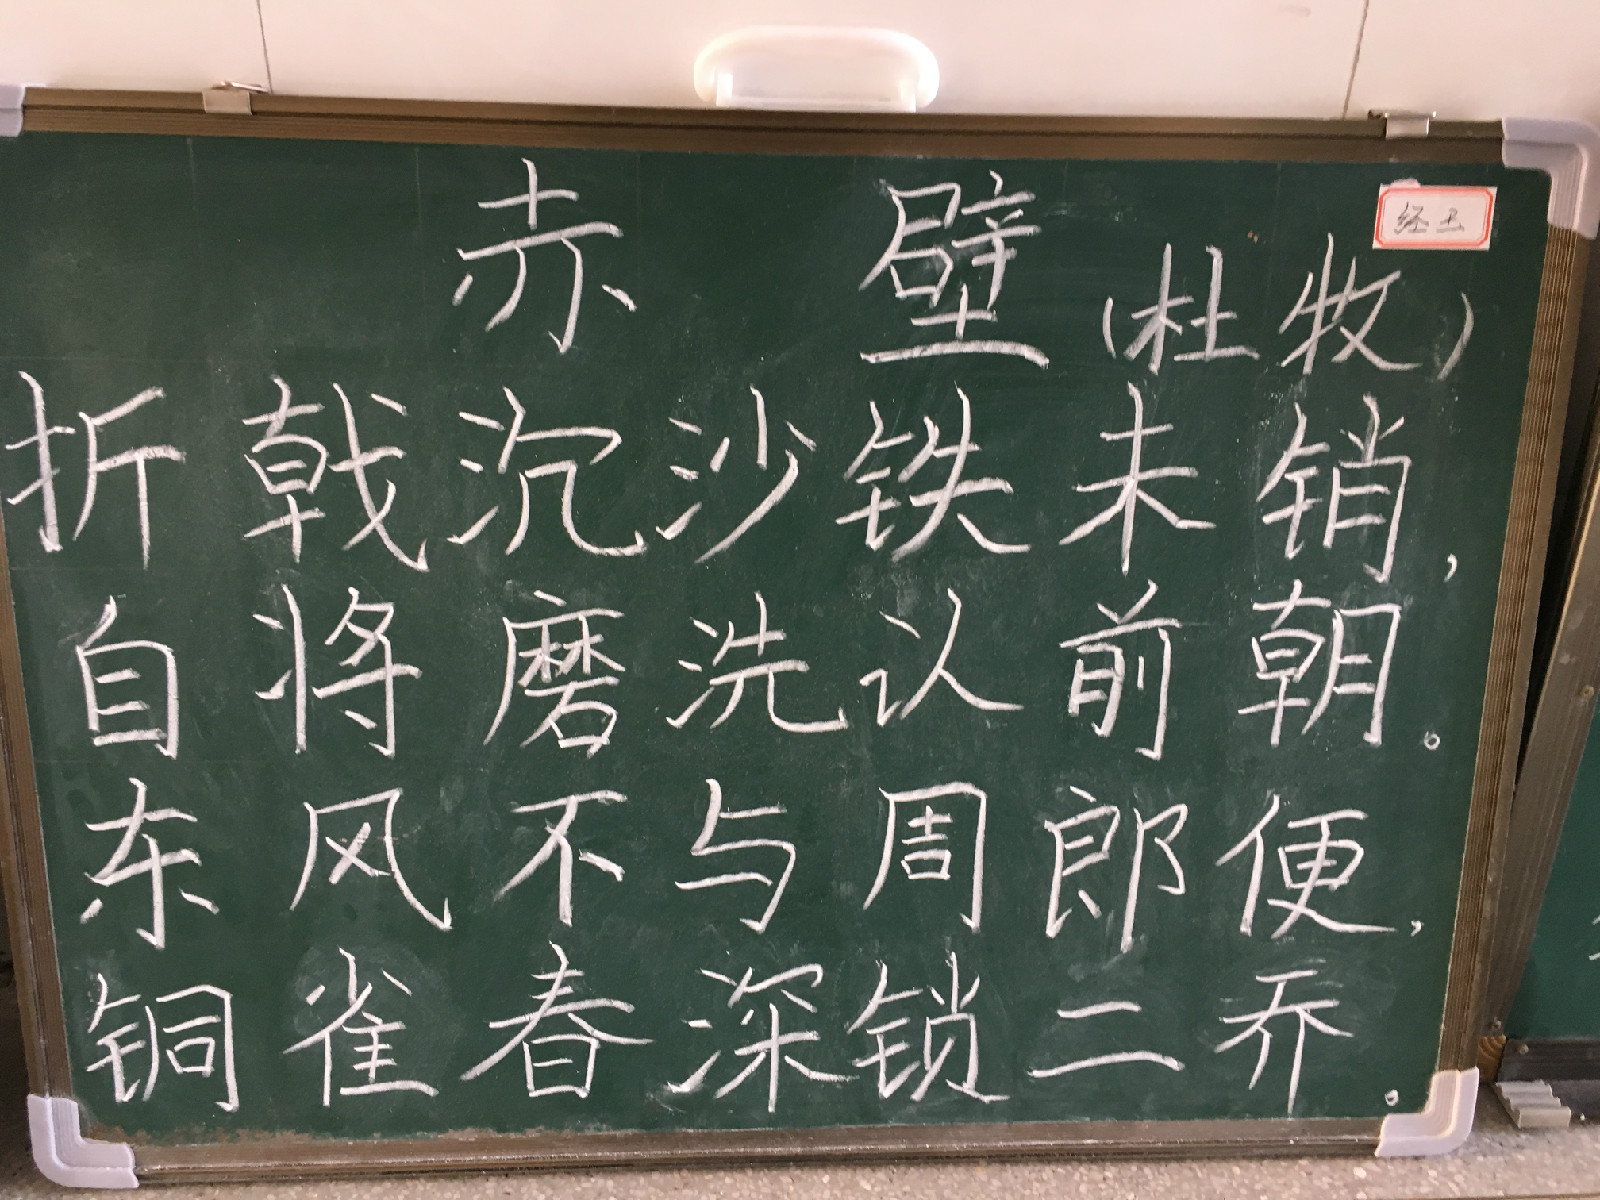 赤壁
(杜牧)
折戟沉沙铁未销,
自将磨洗认前朝。
东风不与周郎便,
铜雀春深锁二乔。